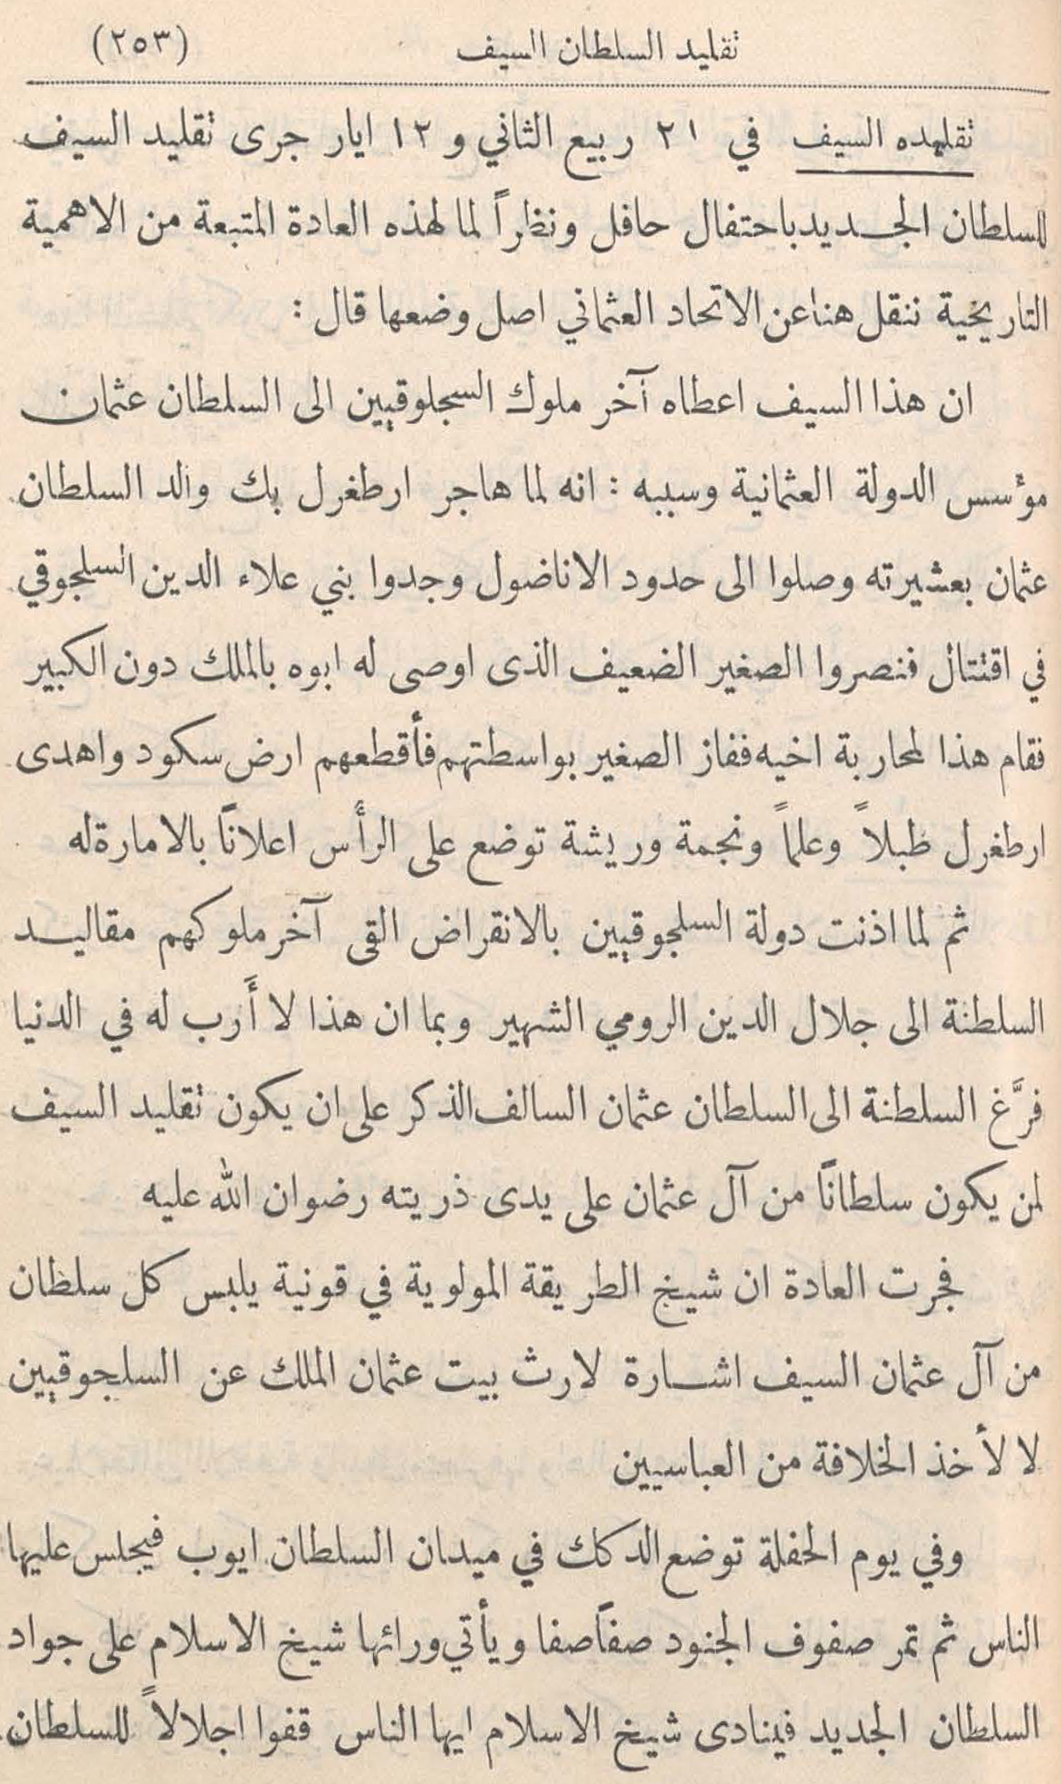 تقليد السلطان السيف (٢٥٣)
تقليده السيف في ٢١ ربيع الثاني و ١٢ ايار جرى تقليد السيف
للسلطان الجديد باحتفال حافل ونظراً لما لهذه العادة المتبعة من الاهمية
التاريخية ننقل هنا عن الاتحاد العثماني اصل وضعها قال :
ان هذا السيف اعطاه آخر ملوك السجلوقيين الى السلطان عثمان
مؤسس الدولة العثمانية وسببه : انه لما هاجر ارطغرل بك والد السلطان
عثمان بعشيرته وصلوا الى حدود الاناضول وجدوا بني علاء الدين السلجوقي
في اقتتال فنصروا الصغير الضعيف الذى اوصى له ابوه بالملك دون الكبير
فقام هذا لمحاربة اخيه ففاز الصغير بواسطتهم فأقطعهم ارض سكود واهدى
ارطغرل طبلاً وعلماً ونجمة وريشة توضع على الرأس اعلاناً بالامارة له
ثم لما اذنت دولة السلجوقيين بالانقراض القى آخر ملوكهم مقاليد
السلطنة الى جلال الدين الرومي الشهير وبما ان هذا لا أَرب له في الدنيا
فرَّغ السلطنة الى السلطان عثمان السالف الذكر على ان يكون تقليد السيف
لمن يكون سلطاناً من آل عثمان على يدى ذريته رضوان الله عليه
فجرت العادة ان شيخ الطريقة المولوية في قونية يلبس كل سلطان
من آل عثمان السيف اشارة لارث بيت عثمان الملك عن السلجوقيين
لا لأخذ الخلافة من العباسيين
وفي يوم الحفلة توضع الدكك في ميدان السلطان ايوب فيجلس عليها
الناس ثم تمر صفوف الجنود صفاً صفا ويأتي ورائها شيخ الاسلام على جواد
السلطان الجديد فينادى شيخ الاسلام ايها الناس قفوا اجلالاً للسلطان